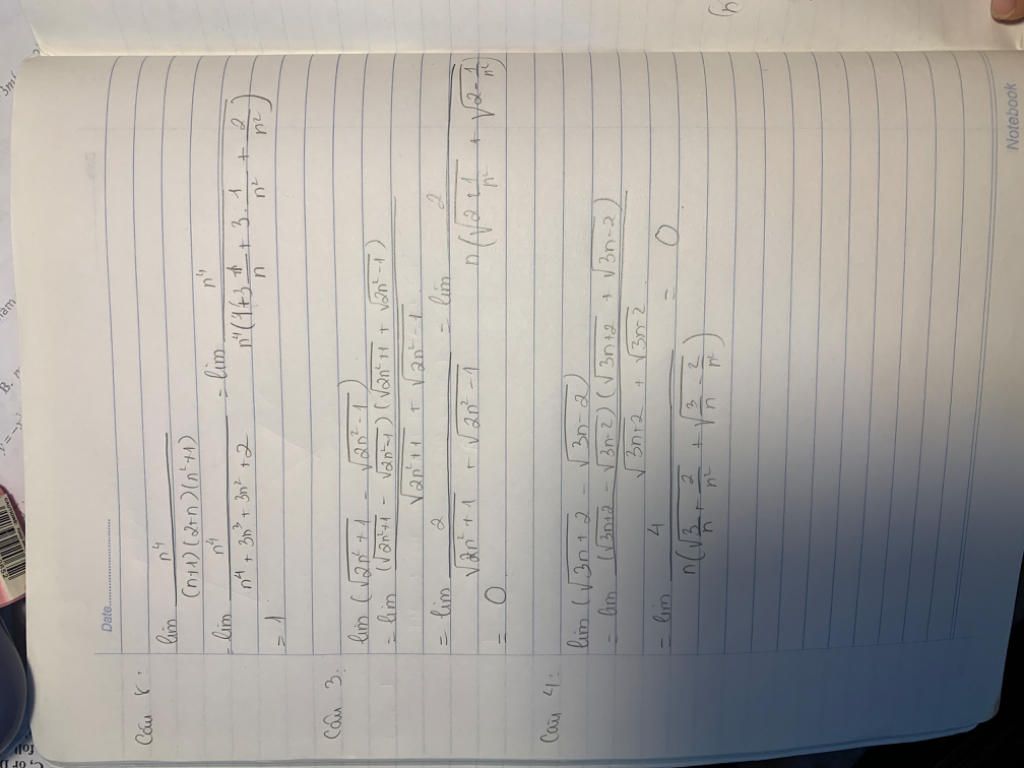 Date
Câu
lim n⁴ / (n+1)(2+n)(n²+1)
= lim n⁴ / n⁴ + 3n³ + 3n² + 2 = lim n⁴ / n⁴(1 + 3 1/n + 3 . 1/n² + 2/n²)
= 1
Câu 3:
lim (√2n²+1 - √2n²-1)
= lim (√2n²+1 - √2n²-1)(√2n²+1 + √2n²-1) / √2n²+1 + √2n²-1
= lim 2 / √2n²+1 + √2n²-1 = lim 2 / n(√2+1/n² + √2-1/n²)
= 0
Câu 4:
lim (√3n+2 - √3n-2)
= lim (√3n+2 - √3n-2)(√3n+2 + √3n-2) / √3n+2 + √3n-2
= lim 4 / n(√3/n + 2/n² + √3/n - 2/n²) = 0
Notebook